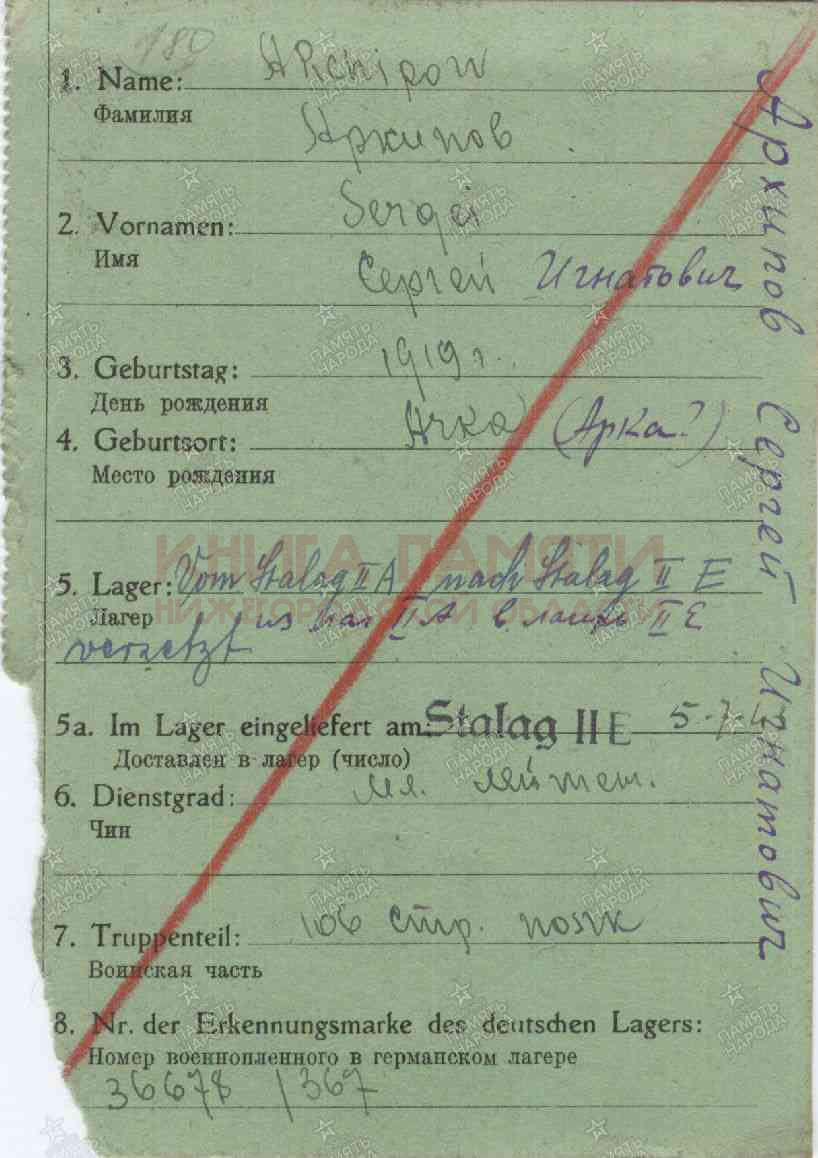 180
1. Name: Archipow
Фамилия
Архипов
2. Vornamen: Sergei
Имя
Сергей Игнатович
3. Geburtstag: 1919 г.
День рождения
4. Geburtsort: Ачка (Арка?)
Место рождения
5. Lager: Vom Stalag II A nach Stalag II E
Лагер из лаг II A в лагерь II E
versetzt
5a. Im Lager eingeliefert am: Stalag II E 5-7-
Доставлен в лагер (число)
6. Dienstgrad: Мл. лейтен.
Чин
7. Truppenteil: 106 стр. полк
Воинская часть
8. Nr. der Erkennungsmarke des deutschen Lagers:
Номер военнопленного в германском лагере
36678 / 367
Архипов Сергей Игнатович
КНИГА ПАМЯТИ
НИЖЕГОРОДСКОЙ ОБЛАСТИ
ПАМЯТЬ НАРОДА